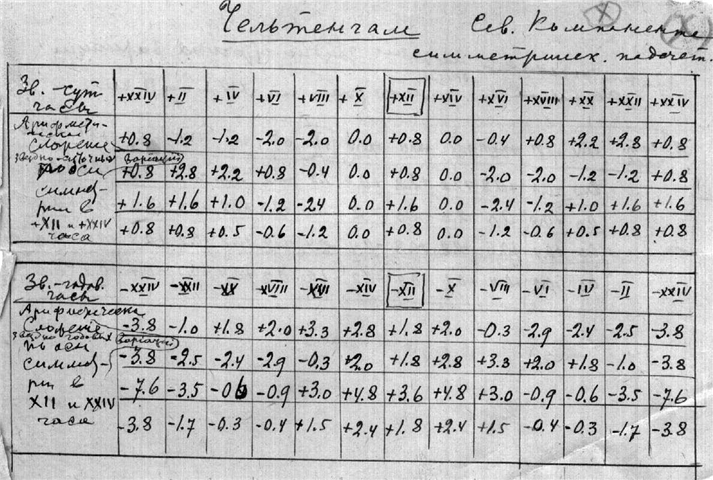 Чельтенгам Сев. Компонента
симметрич. подсчет.
Зв.-сут. часы +XXIV +II +IV +VI +VIII +X +XII +XIV +XVI +XVIII +XX +XXII +XXIV
Арифмети-
ческое +0.8 -1.2 -1.2 -2.0 -2.0 0.0 +0.8 0.0 -0.4 +0.8 +2.2 +2.8 +0.8
сложение
вариаций
по оси +0.8 +2.8 +2.2 +0.8 -0.4 0.0 +0.8 0.0 -2.0 -2.0 -1.2 -1.2 +0.8
симмет-
рии в +1.6 +1.6 +1.0 -1.2 -2.4 0.0 +1.6 0.0 -2.4 -1.2 +1.0 +1.6 +1.6
+XII и +XXIV
часа +0.8 +0.8 +0.5 -0.6 -1.2 0.0 +0.8 0.0 -1.2 -0.6 +0.5 +0.8 +0.8
Зв.-годов. часы -XXIV -XXII -XX -XVIII -XVI -XIV -XII -X -VIII -VI -IV -II -XXIV
Арифметическ
сложение -3.8 -1.0 +1.8 +2.0 +3.3 +2.8 +1.8 +2.0 -0.3 -2.9 -2.4 -2.5 -3.8
вариаций
по оси -3.8 -2.5 -2.4 -2.9 -0.3 +2.0 +1.8 +2.8 +3.3 +2.0 +1.8 -1.0 -3.8
симмет-
рии в -7.6 -3.5 -0.6 -0.9 +3.0 +4.8 +3.6 +4.8 +3.0 -0.9 -0.6 -3.5 -7.6
XII и XXIV
часа -3.8 -1.7 -0.3 -0.4 +1.5 +2.4 +1.8 +2.4 +1.5 -0.4 -0.3 -1.7 -3.8